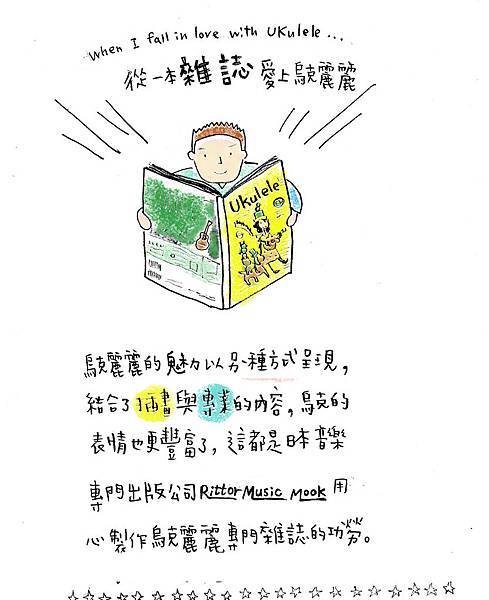 When I fall in love with UKulele...
從一本雜誌愛上烏克麗麗
Ukulele
烏克麗麗的魅力以另一種方式呈現,
結合了插畫與專業的內容,烏克的
表情也更豐富了,這都是日本音樂
專門出版公司Rittor Music Mook 用
心製作烏克麗麗專門雜誌的功勞。